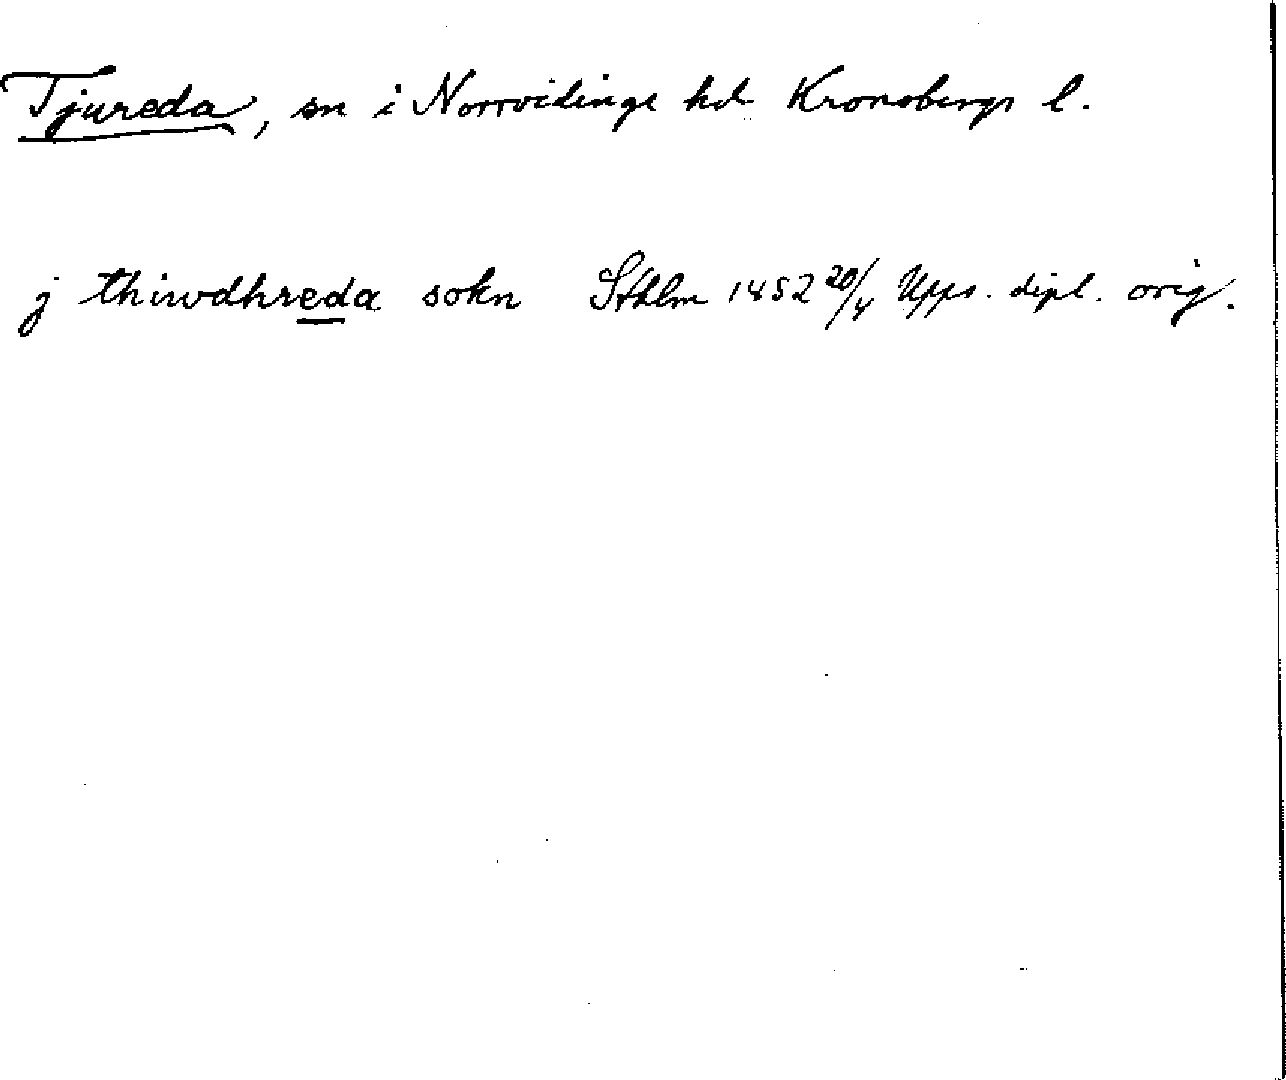 Tjureda, sn i Norrvidinge hd Kronobergs l.
j thiwdhreda sokn Sthlm 1452 20/4 Upps. dipl. orig.